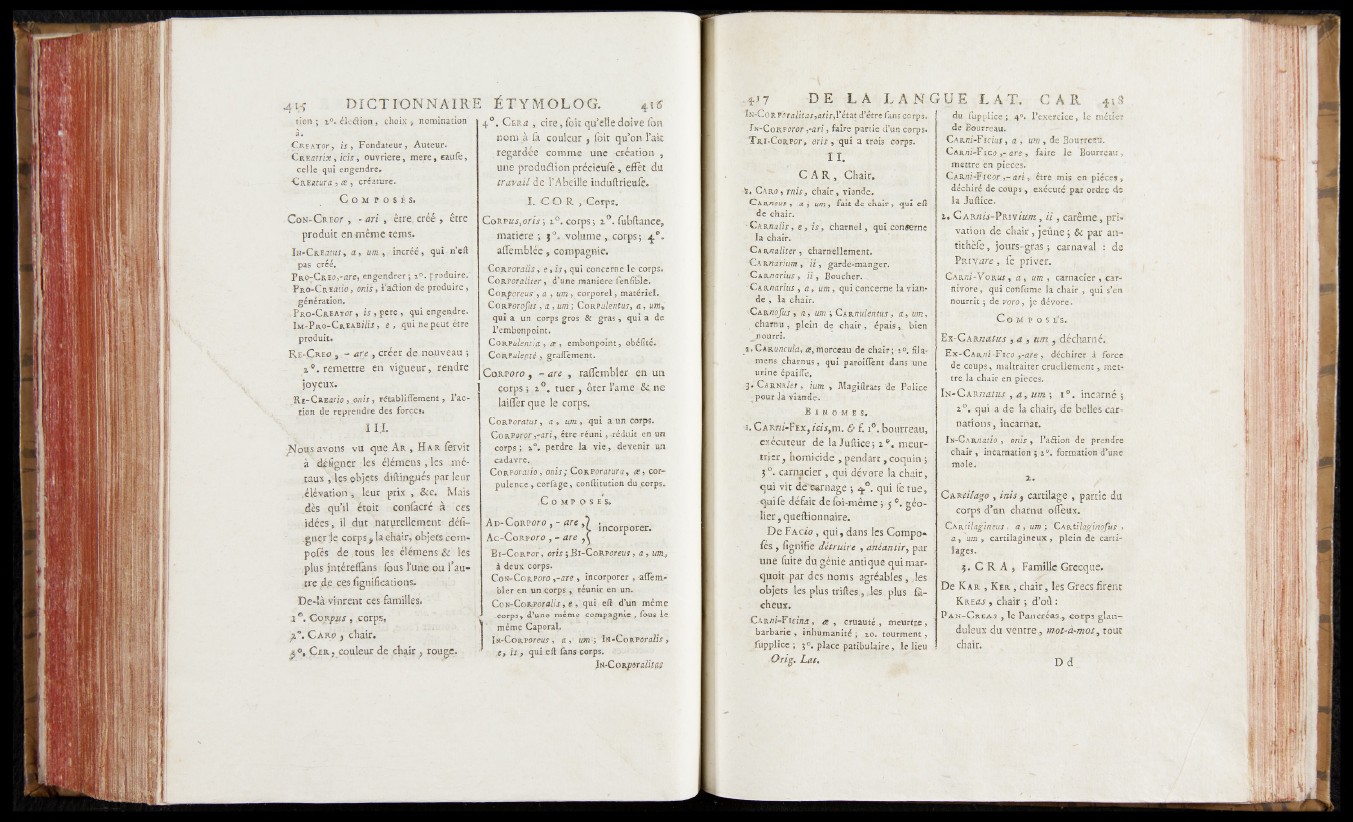 415 DICTIONNAIRE ÉTYMOLOG. 416
tion ; 2°. élection, choix, nomination
à.
CREATor, is, Fondateur, Auteur.
CREATrix, icis, ouvriere, mere, cause,
celle qui engendre.
CREATura, æ, créature.
COMPOSÉS.
CON-CREor, -ari, être créé, être
produit en même tems.
IN-CREAtus, a, um, incréé, qui n'est
pas créé.
PRO-CREO,-are, engendrer ; 2°. produire.
PRO-CREAtio, onis, l'action de produire,
génération.
PRO-CREATor, is, pere, qui engendre.
IM-PRO-CREABilis, e, qui ne peut être
produit.
RE-CREO, - are, créer de nouveau ;
2°. remettre en vigueur, rendre
joyeux.
RE-CREAtio, onis, rétablissement, l'ac-
tion de reprendre des forces.
III.
Nous avons vu que AR, HAR servit
à désigner les élémens, les mé-
taux, les objets distingués par leur
élévation, leur prix, &c. Mais
dès qu'il étoit consacré à ces
idées, il dut naturellement dési-
gner le corps, la chair, objets com-
posés de tous les élémens & les
plus intéressans sous l'une ou l'au-
tre de ces significations.
De-là vinrent ces familles.
1°. CORpus, corps.
2°. CARO, chair.
3°. CER, couleur de chair, rouge.
4°. CERa, cire, soit qu'elle doive son
nom à sa couleur, soit qu'on l'ait
regardée comme une création,
une production précieuse, effet du
travail de l'Abeille industrieuse.
I. COR, Corps.
CORpus,oris ; 1°. corps ; 2°. substance,
matiere ; 3°. volume, corps ; 4°.
assemblée, compagnie.
CORporalis, e, is, qui concerne le corps.
CORporaliter, d'une maniere sensible.
CORporeus, a, um, corporel, matériel.
CORporosus, a, um ; CORpulentus, a, um,
qui a un corps gros & gras, qui a de
l'embonpoint.
CORPulentia, æ, embonpoint, obésité.
CORPulentè, grassement.
CORporo, - are, rassembler en un
corps ; 2°. tuer, ôter l'ame & ne
laisser que le corps.
CORporatus, a, um, qui a un corps.
CORporor,-ari, être réuni, réduit en un
corps ; 2°. perdre la vie, devenir un
cadavre.
CORporatio, onis ; CORporatura, æ, cor-
pulence, corsage, constitution du corps.
COMPOSÉS.
AD-CORporo, - are,
AC-CORporo, - are, } incorporer.
BI-CORpor, oris ; BI-CORporeus, a, um,
à deux corps.
CON-CORporo,-are, incorporer, assem-
bler en un corps, réunir en un.
CON-CORporalis, e, qui est d'un même
corps, d'une même compagnie, sous le
même Caporal.
IN-CORporeus, a, um ; IN-CORporalis,
e, is, qui est sans corps.
IN-CORporalitas
417 DE LA LANGUE LAT. CAR 418
IN-CORPoralitas,atis,l'état d'être sans corps.
IN-CORporor,-ari, faire partie d'un corps.
TRI-CORpor, oris, qui a trois corps.
II.
CAR, Chair.
1. CARO, rnis, chair, viande.
CARneus, a, um, fait de chair, qui est
de chair.
CARnalis, e, is, charnel, qui concerne
la chair.
CARnaliter, charnellement.
CARnarium, ii, garde-manger.
CARnarius, ii, Boucher.
CARnarius, a, um, qui concerne la vian-
de, la chair.
CARnosus, a, um ; CARnulentus, a, um,
charnu, plein de chair, épais, bien
nourri.
2. CARuncula, æ, morceau de chair ; 2°. fila-
mens charnus, qui paroissent dans une
urine épaisse.
3. CARNALes, ium, Magistrats de Police
pour la viande.
BINOMES.
1. CARni-FEX, icis,m. & f. 1°. bourreau,
exécuteur de la Justice ; 2°. meur-
trier, homicide, pendart, coquin ;
3°. carnacier, qui dévore la chair,
qui vit de carnage ; 4°. qui se tue,
qui se défait de soi-même ; 5°. géo-
lier, questionnaire.
De FACio, qui, dans les Compo-
sés, signifie détruire, anéantir, par
une suite du génie antique qui mar-
quoit par des noms agréables, les
objets les plus tristes, les plus fâ-
cheux.
CARni-FIcina, æ, cruauté, meurtre,
barbarie, inhumanité ; 2o. tourment,
supplice ; 3°. place patibulaire, le lieu
Orig. Lat.
du supplice ; 4°. l'exercice, le métier
de Bourreau.
CARni-FIcius, a, um, de Bourreau.
CARni-FIco,- are, faire le Bourreau,
mettre en pieces.
CARni-FIcor,- ari, être mis en piéces,
déchiré de coups, exécuté par ordre de
la Justice.
2. CARnis-PRIVium, ii, carême, pri-
vation de chair, jeûne ; & par an-
tithèse, jours-gras ; carnaval : de
PRIVare, se priver.
CARni-VORus, a, um, carnacier, car-
nivore, qui consume la chair, qui s'en
nourrit ; de voro, je dévore.
COMPOSÉS.
EX-CARNatus, a, um, décharné.
EX-CARni-FIco,-are, déchirer à force
de coups, maltraiter cruellement, met-
tre la chair en pieces.
IN-CARnatus, a, um ; 1°. incarné ;
2°. qui a de la chair, de belles car-
nations, incarnat.
IN-CARnatio, onis, l'action de prendre
chair, incarnation ; 2°. formation d'une
mole.
2.
CARtilago, inis, cartilage, partie du
corps d'un charnu osseux.
CARtilagineus, a, um ; CARtilaginosus,
a, um, cartilagineux, plein de carti-
lages.
3. CRA, Famille Grecque.
De KAR, KER, chair, les Grecs firent
KREAS, chair ; d'où :
PAN-CREAS, le Pancréas, corps glan-
duleux du ventre, mot-à-mot, tout
chair.
D d